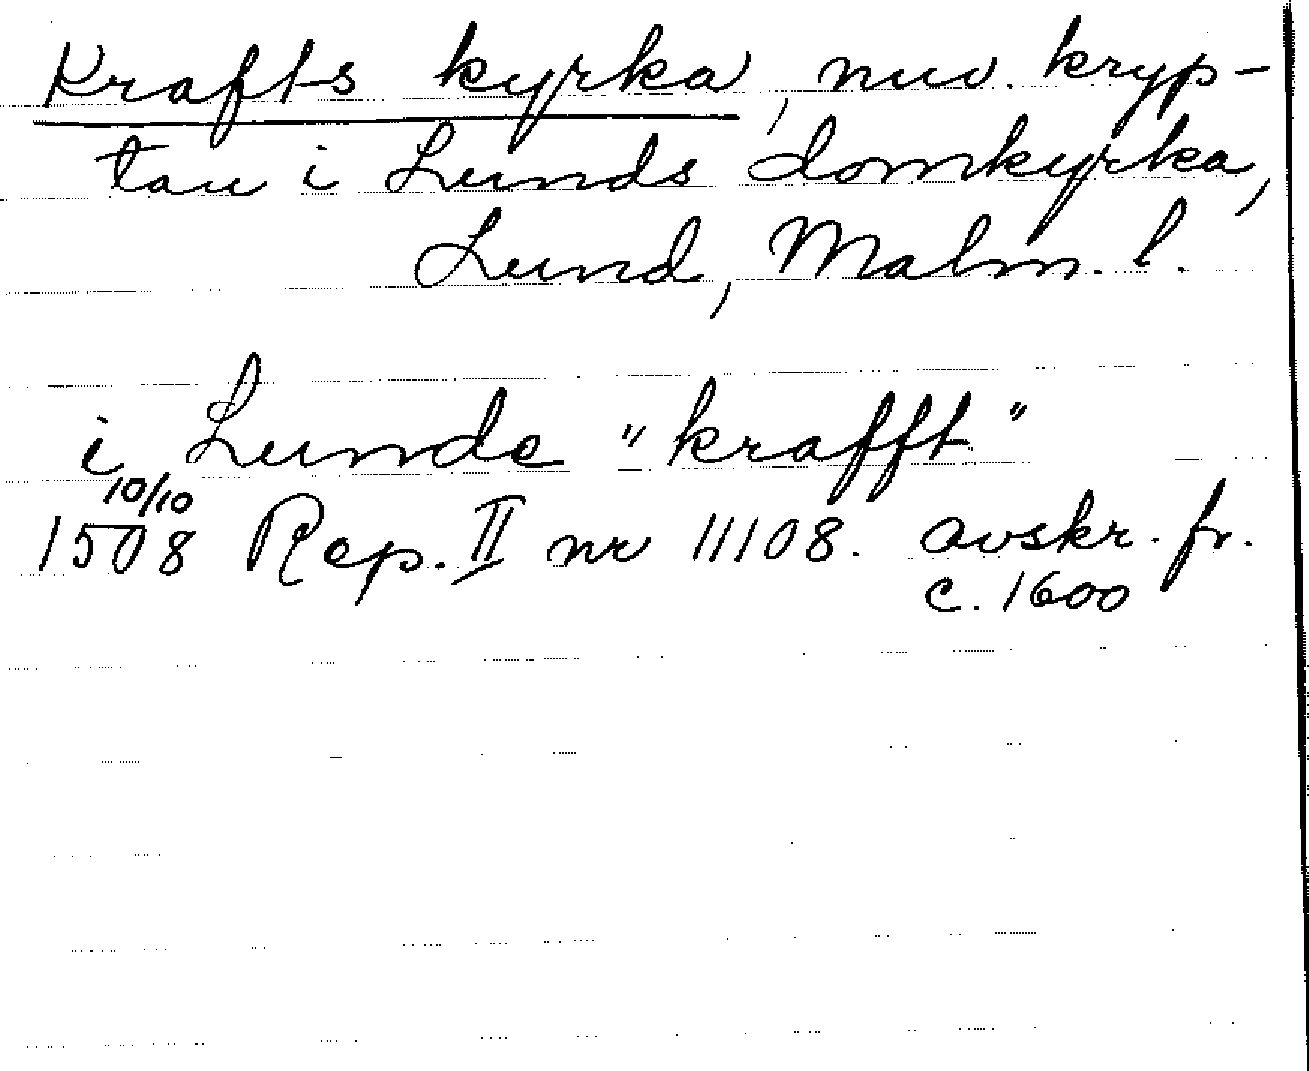 Krafts kyrka, nuv. kryp-
tan i Lunds domkyrka,
Lund, Malm. l.
i Lunde "krafft"
10/10
1508 Rep. II nr 11108. avskr. fr.
c. 1600